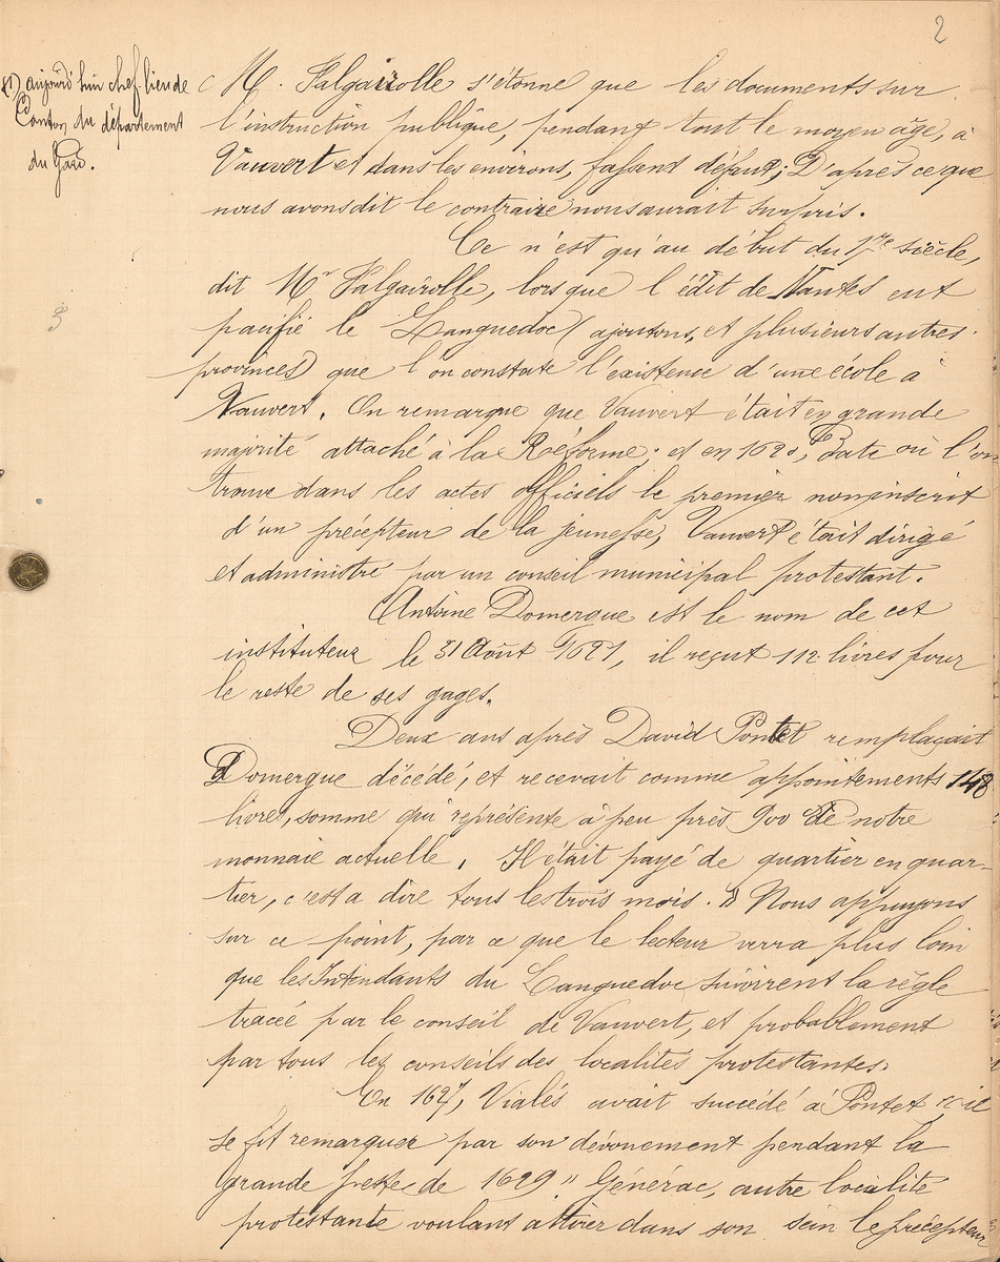 2
(1) aujourd'hui chef-lieu de
Canton du département
du Gard.
3
M. Falgairolle s'étonne que les documents sur
l'instruction publique, pendant tout le moyen âge, à
Vauvert et dans les environs, fassent défaut; D'après ce que
nous avons dit le contraire nous aurait surpris.
Ce n'est qu'au début du 17me siècle,
dit Mr Falgairolle, lorsque l'édit de Nantes eut
pacifié le Languedoc (ajoutons, et plusieurs autres
provinces) que l'on constate l'existence d'une école à
Vauvert. On remarque que Vauvert était en grande
majorité attaché à la Réforme; et en 1620, Date où l'on
trouve dans les actes officiels le premier nom inscrit
d'un précepteur de la jeunesse, Vauvert était dirigé
et administré par un conseil municipal protestant.
Antoine Domergue est le nom de cet
instituteur le 31 Août 1621, il reçut 112 livres pour
le reste de ses gages.
Deux ans après David Pontet remplaçait
Domergue décédé, et recevait comme appointements 148
livres, somme qui représente à peu près 900 de notre
monnaie actuelle. Il était payé de quartier en quar-
tier, c'est a dire tous les trois mois. » Nous appuyons
sur ce point, par ce que le lecteur verra plus loin
que les Intendants du Languedoc suivirent la règle
tracée par le conseil de Vauvert, et probablement
par tous les conseils des localités protestantes.
En 1627, Vialés avait succédé à Pontet « il
se fit remarquer par son dévouement pendant la
grande peste de 1629 » Générac, autre localité
protestante voulant attirer dans son sein le précepteur